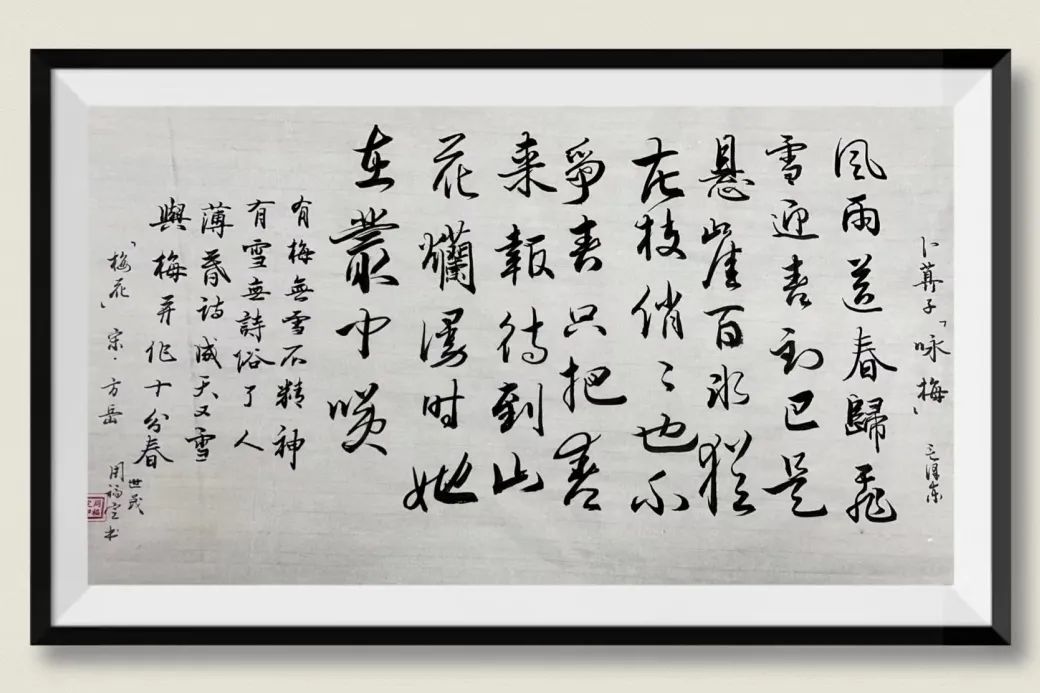 卜算子「咏梅」 毛澤东
风雨送春歸飛
雪迎春到已是
悬崖百氷猶
花枝俏〻也不
爭春只把春
来報待到山
花爛漫时她
在叢中咲
有梅無雪不精神
有雪無詩俗了人
薄暮詩成天又雪
與梅并作十分春
「梅花」宋·方岳
世茂
周福宝书